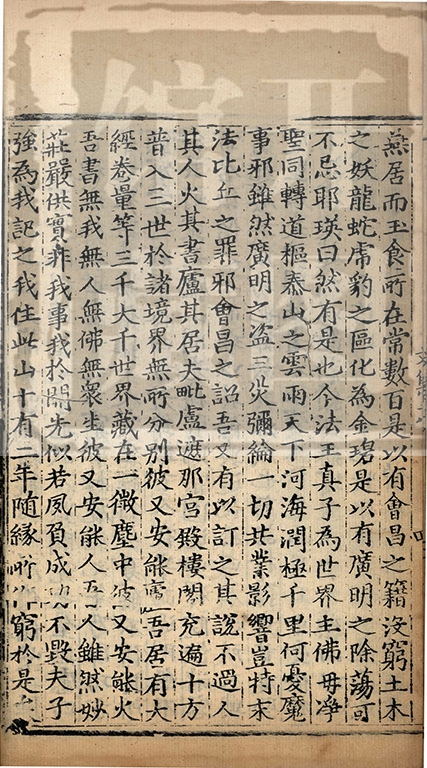 燕居而玉食所在常數百是以有會昌之籍沒窮土木
之妖龍蛇虎豹之區化為金碧是以有廣明之除蕩可
不忌耶瑛曰然有是也今法王真子為世界主佛母淨
聖同轉道樞泰山之雲雨天下河海潤極千里何憂魔
事邪雖然廣明之盜三災彌綸一切共業影響豈特末
法比丘之罪邪會昌之詔吾又有以訂之其說不過人
其人火其書廬其居夫毗盧遮那宮殿樓閣充遍十方
普入三世於諸境界無所分別彼又安能廬吾居有大
經卷量等三千大千世界藏在一微塵中彼又安能火
吾書無我無人無佛無衆生彼又安能人吾人雖然妙
莊嚴供實非我事我於開先似若夙負成功不毀夫子
強為我記之我住此山十有二年隨緣所作窮於是